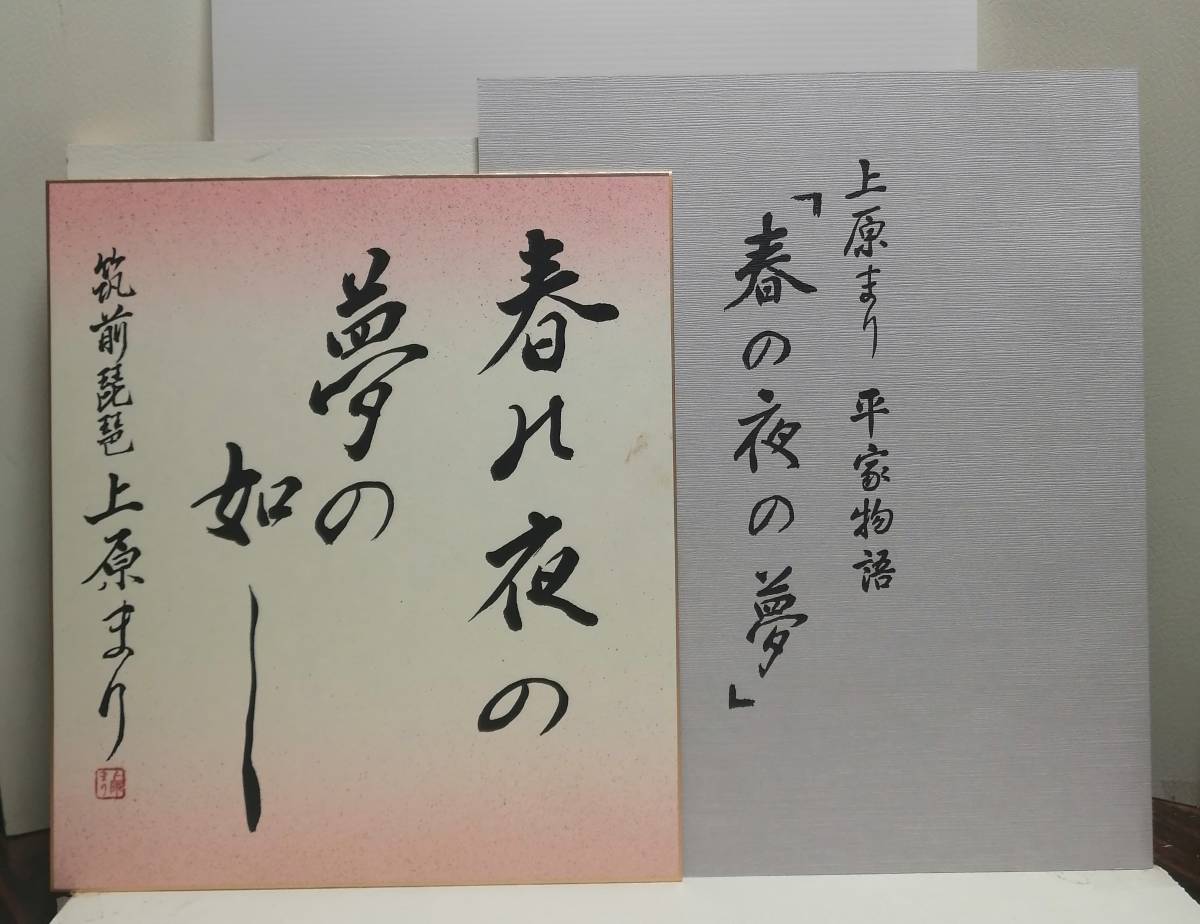 春の夜の
夢の
如し
筑前琵琶 上原まり
上原まり
上原まり 平家物語
「春の夜の夢」